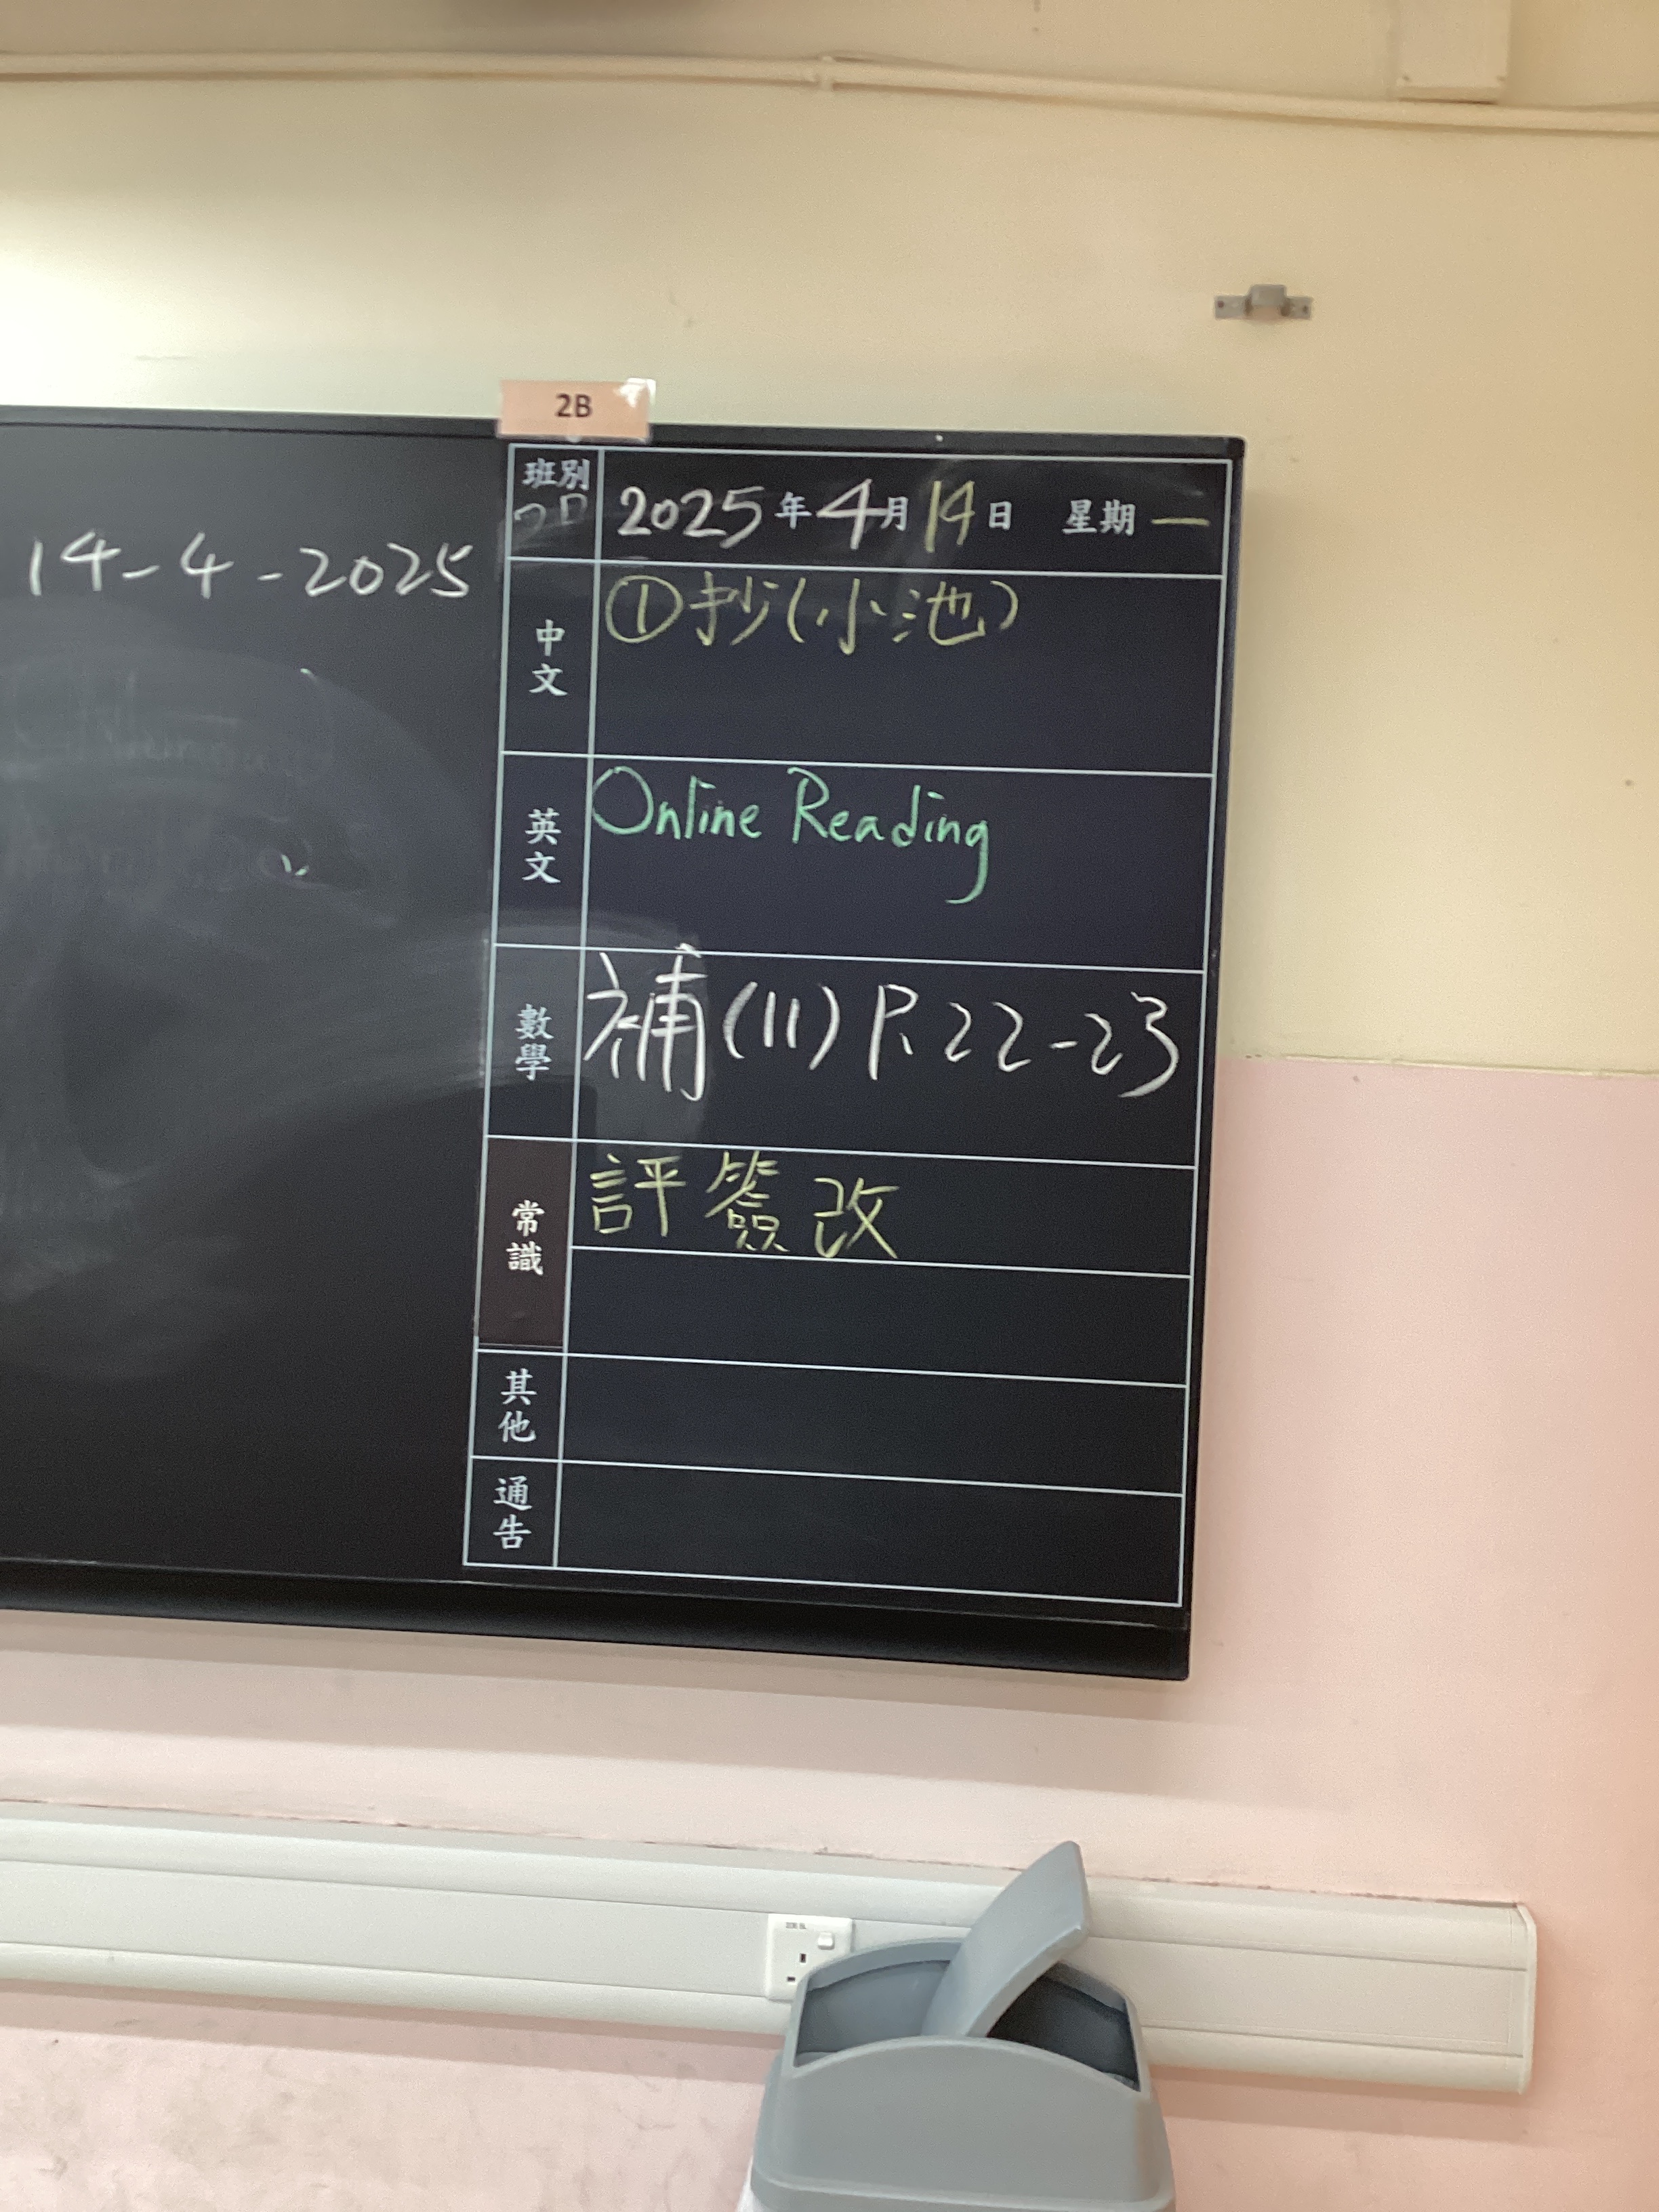 2B
14-4-2025
班別 2025年4月14日 星期一
中文 ①抄(小池)
英文 Online Reading
數學 補(11) P.22-23
常識 評簽改
其他
通告